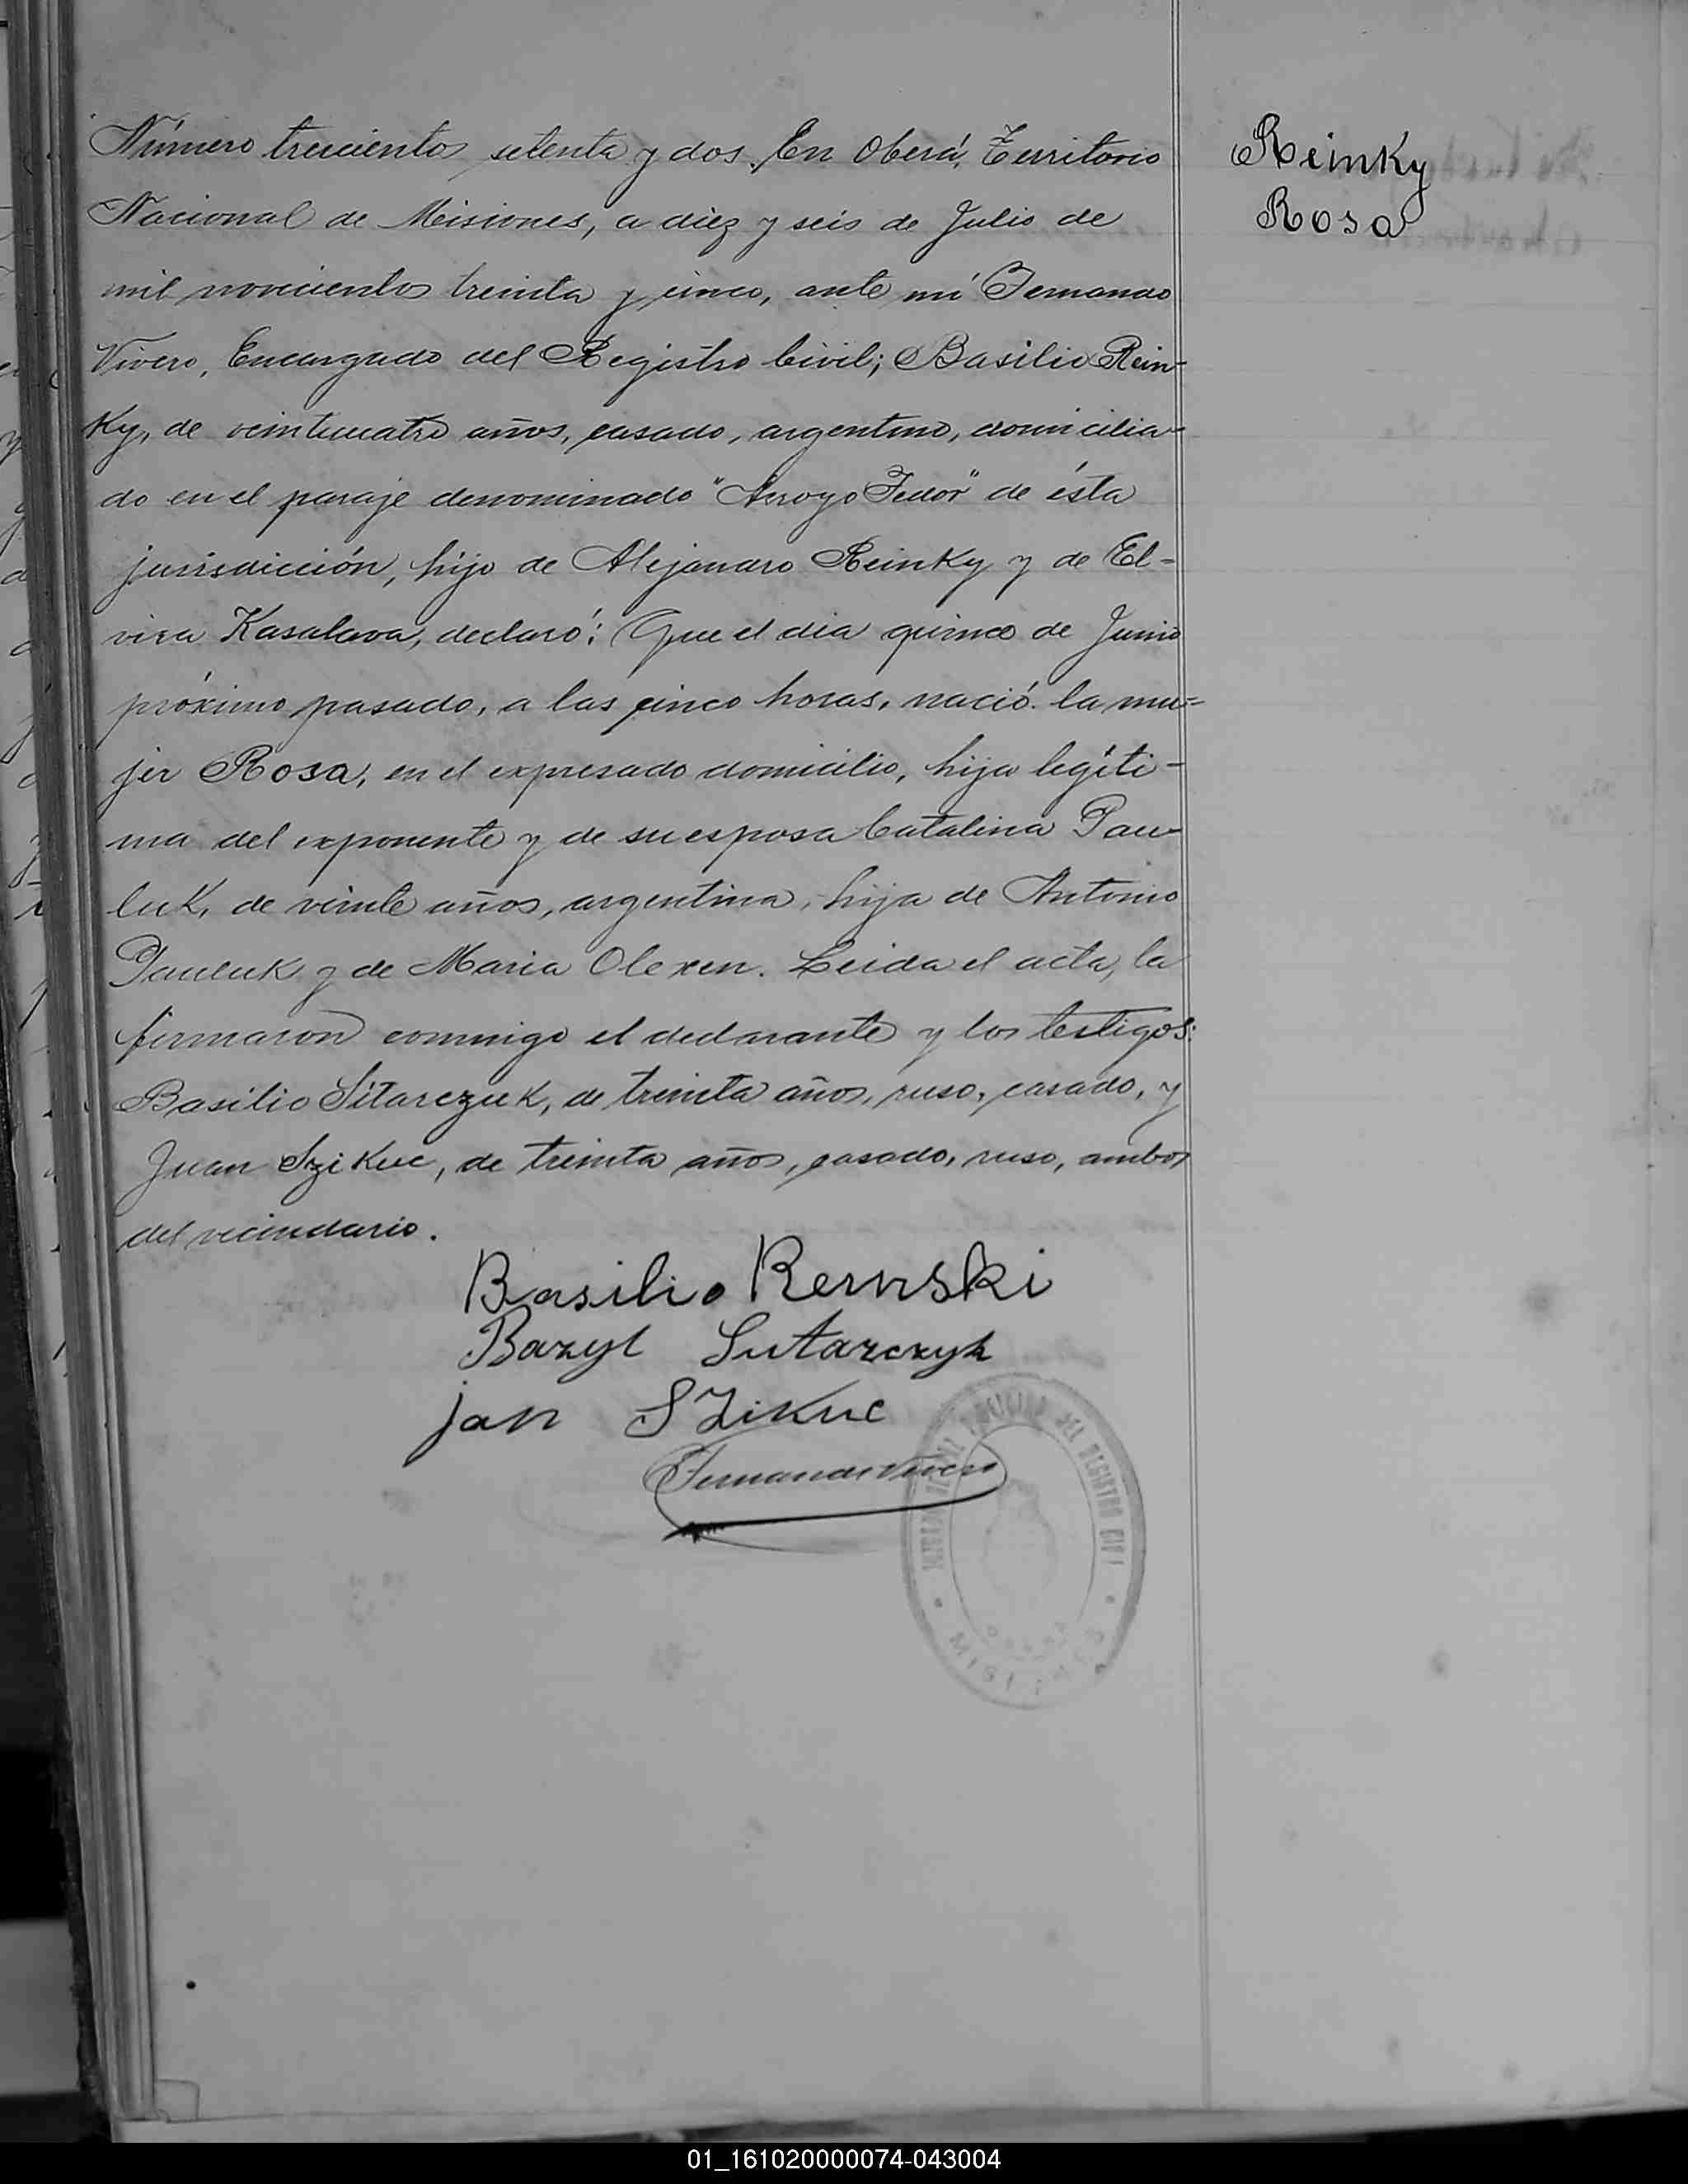 Número trescientos setenta y dos. En Oberá, Territorio
Nacional de Misiones, a diez y seis de Julio de
mil novecientos treinta y cinco, ante mí Fernando
Vivero, Encargado del Registro Civil; Basilio Rein-
Ky, de veinticuatro años, casado, argentino, domicilia-
do en el paraje denominado "Arroyo Fedor" de ésta
jurisdicción, hijo de Alejandro Reinky y de El-
vira Kasalava, declaró: Que el dia quince de Junio
próximo pasado, a las cinco horas, nació la mu=
jer Rosa, en el expresado domicilio, hija legíti-
ma del exponente y de su esposa Catalina Pau-
luk, de veinte años, argentina, hija de Antonio
Pauluk y de Maria Olexen. Leida el acta, la
firmaron conmigo el declarante y los testigos:
Basilio Sitarczuk, de treinta años, ruso, casado, y
Juan Szikuc, de treinta años, casado, ruso, ambos
del vecindario.
Basilio Rernski
Bazyl Sutarczyk
jan SZikuc
Fernando Vivero
DEL REGISTRO CIVIL
MISIONES
Reinky
Rosa
01_161020000074-043004